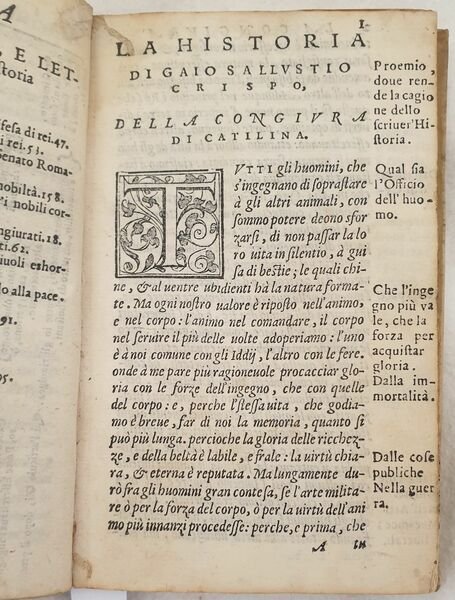 A
, E LET-
storia
fesa di rei.47.
rei.53.
Senato Roma-
nobiltà.158.
i nobili cor-
ngiurati.18.
ti.62.
iuoli eshor-
lo alla pace.
91.
95.
1
LA HISTORIA
DI GAIO SALLVSTIO
CRISPO,
DELLA CONGIVRA
DI CATILINA.
TVTTI gli huomini, che
s'ingegnano di soprastare
à gli altri animali, con
sommo potere deono sfor
zarsi, di non passar la lo
ro uita in silentio, à gui
sa di bestie; le quali chi-
ne, & al uentre ubidienti hà la natura forma-
te. Ma ogni nostro ualore è riposto nell'animo,
e nel corpo: l'animo nel comandare, il corpo
nel seruire il più delle uolte adoperiamo: l'uno
è à noi comune con gli Iddij, l'altro con le fere.
onde à me pare piu ragioneuole procacciar glo-
ria con le forze dell'ingegno, che con quelle
del corpo: e, perche l'istessa uita, che godia-
mo è breue, far di noi la memoria, quanto si
può più lunga. percioche la gloria delle ricchez-
ze, e della beltà è labile, e frale: la uirtù chia-
ra, & eterna è reputata. Ma lungamente du-
rò fra gli huomini gran contesa, se l'arte milita-
re ò per la forza del corpo, ò per la uirtù dell'ani
mo più innanzi procedesse: perche, e prima, che
A in
Proemio,
doue ren-
de la cagio
ne dello
scriuer'Hi-
storia.
Qual sia
l'Officio
dell'huo-
mo.
Che l'inge
gno più va
le, che la
forza per
acquistar
gloria.
Dalla im-
mortalità.
Dalle cose
publiche
Nella guer
ra.